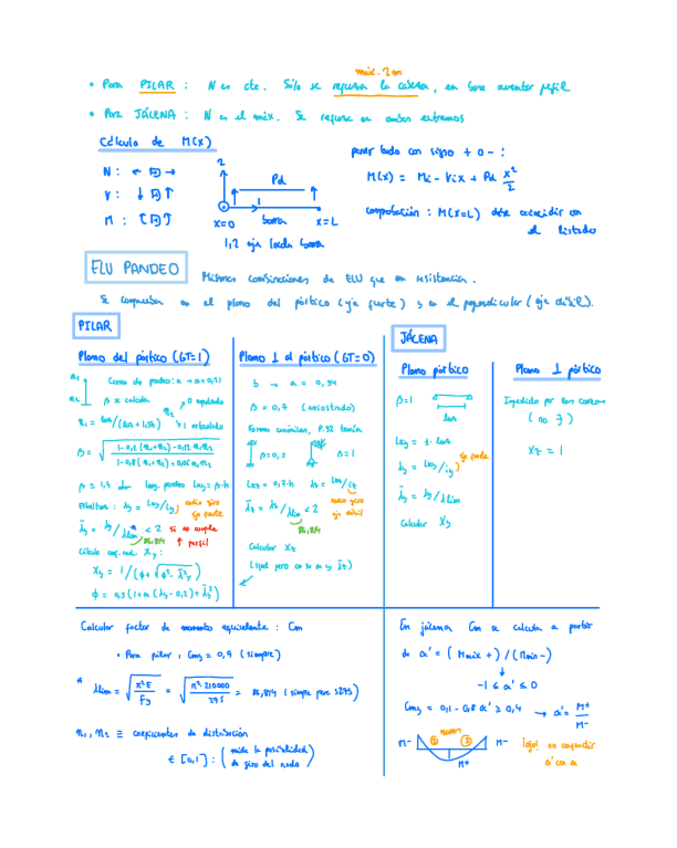 máx. 2m
• Para PILAR : N es cte. Sólo se refuerza la cabeza, en base aumentar perfil
• Para JÁCENA : N es el máx. Se refuerza en ambos extremos
Cálculo de M(x)
poner todo con signo + o - :
N : ← →
V : ↓ ↑
M :
2
Pd
1
barra
x=0
x=L
1,2 eje local barra
M(x) = Mi - Vi x + Pd x²/2
comprobación : M(x=L) debe coincidir con
el listado
ELU PANDEO
Mismas combinaciones de ELU que en resistencia.
Se comprueba en el plano del pórtico (eje fuerte) y en el perpendicular (eje débil).
PILAR
Plano del pórtico (GT=1)
n1
n2
Curva de pandeo: a → α=0,21
β se calcula
n2
0 empotrado
1 articulado
β =
β ≥ 1,4 long. pandeo Lky = β·h
Esbeltez : λy = Lky/iy
radio giro
eje fuerte
λ̄y = λy/λlim < 2
86,814
si no cumple
↑ perfil
Cálculo coef. red. χy :
χy = 1/(φ+√(φ²-λ̄²y))
φ = 0,5(1+α(λ̄y-0,2)+λ̄y²)
Plano ⊥ al pórtico (GT=0)
b → α = 0,34
β = 0,7 (arriostrado)
β=0,5
β=1
Lkz = 0,7·h λz = Lkz/iz
radio giro
eje débil
λ̄z = λz/λlim < 2
86,814
Calcular χz
JÁCENA
Plano pórtico
β=1
Lky = 1·
λy = Lky/iy
eje fuerte
λ̄y = λy/λlim
Calcular χy
Plano ⊥ pórtico
Impedido por las correas
χz = 1
Calcular factor de momento equivalente : Cm
• Para pilar : Cmy = 0,9 (siempre)
* λlim = √(π²E/Fy) = √(π²·210000/275) = 86,814 (siempre para S275)
n1, n2 ≡ coeficientes de distribución
∈ [0,1] : (mide la posibilidad
de giro del nudo)
En jácena Cm se calcula a partir
de α' = (Mmáx +) / (Mmin -)
↓
-1 ≤ α' ≤ 0
Cmy = 0,1 - 0,8 α' ≥ 0,4 → α' = M+/M-
M-
M-
M+
¡ojo! no confundir
α' con α